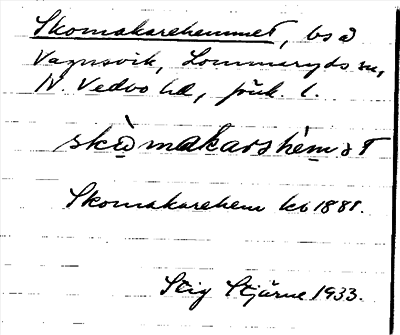 Skomakarehemmet, bs å
Vagnsvik, Lommaryds sn,
N. Vedbo hd, Jönk. l.
skòmakarshèmət
Skomakarehem kb 1881.
Stig Stjärne 1933.